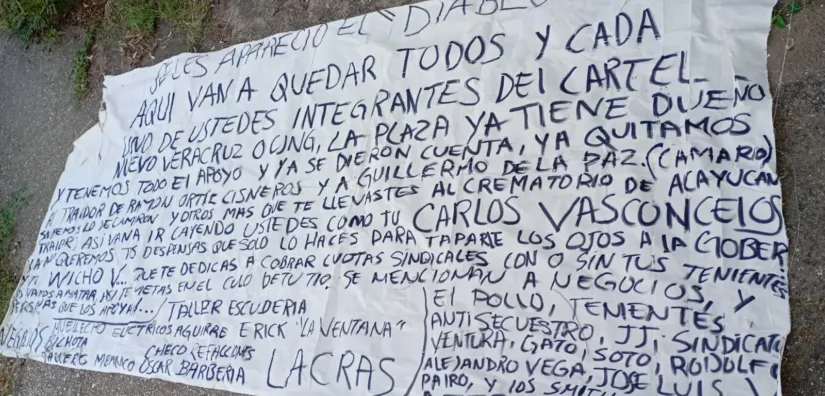 SE LES APARECIO EL "DIABLO
AQUI VAN A QUEDAR TODOS Y CADA
UNO DE USTEDES INTEGRANTES DEL CARTEL
NUEVO VERACRUZ O CJNG, LA PLAZA YA TIENE DUEÑO
Y TENEMOS TODO EL APOYO Y YA SE DIERON CUENTA, YA QUITAMOS
AL TRAIDOR DE RAMON ORTIZ CISNEROS Y A GUILLERMO DE LA PAZ. (CAMARO)
SABEMOS LO DE CAMARON Y OTROS MAS QUE TE LLEVASTES AL CREMATORIO DE ACAYUCAN
TRAIDOR) ASI VAN A IR CAYENDO USTEDES COMO TU CARLOS VASCONCELOS
YA NO QUEREMOS TS DESPENSAS QUE SOLO LO HACES PARA TAPARTE LOS OJOS A LA GOBER.
Y TU WICHO V... QUE TE DEDICAS A COBRAR CUOTAS SINDICALES CON O SIN TUS TENIENTES
VAMOS A MATAR, ASI TE METAS EN EL CULO DE TU TIO. SE MENCIONAN A NEGOCIOS, Y
QUE LOS APOYA!... / TALLER ESCUDERIA
ELECTRICOS AGUIRRE ERICK "LA VENTANA"
CHOTA CHECO REFACCIONES
OSCAR BARBERIA LACRAS
El POLLO, TENIENTES,
ANTISECUESTRO, JJ, SINDICATO
VENTURA, GATO, SOTO, RODOLFO
ALEJANDRO VEGA, JOSE LUIS V
PAIRO, Y LOS SMITH